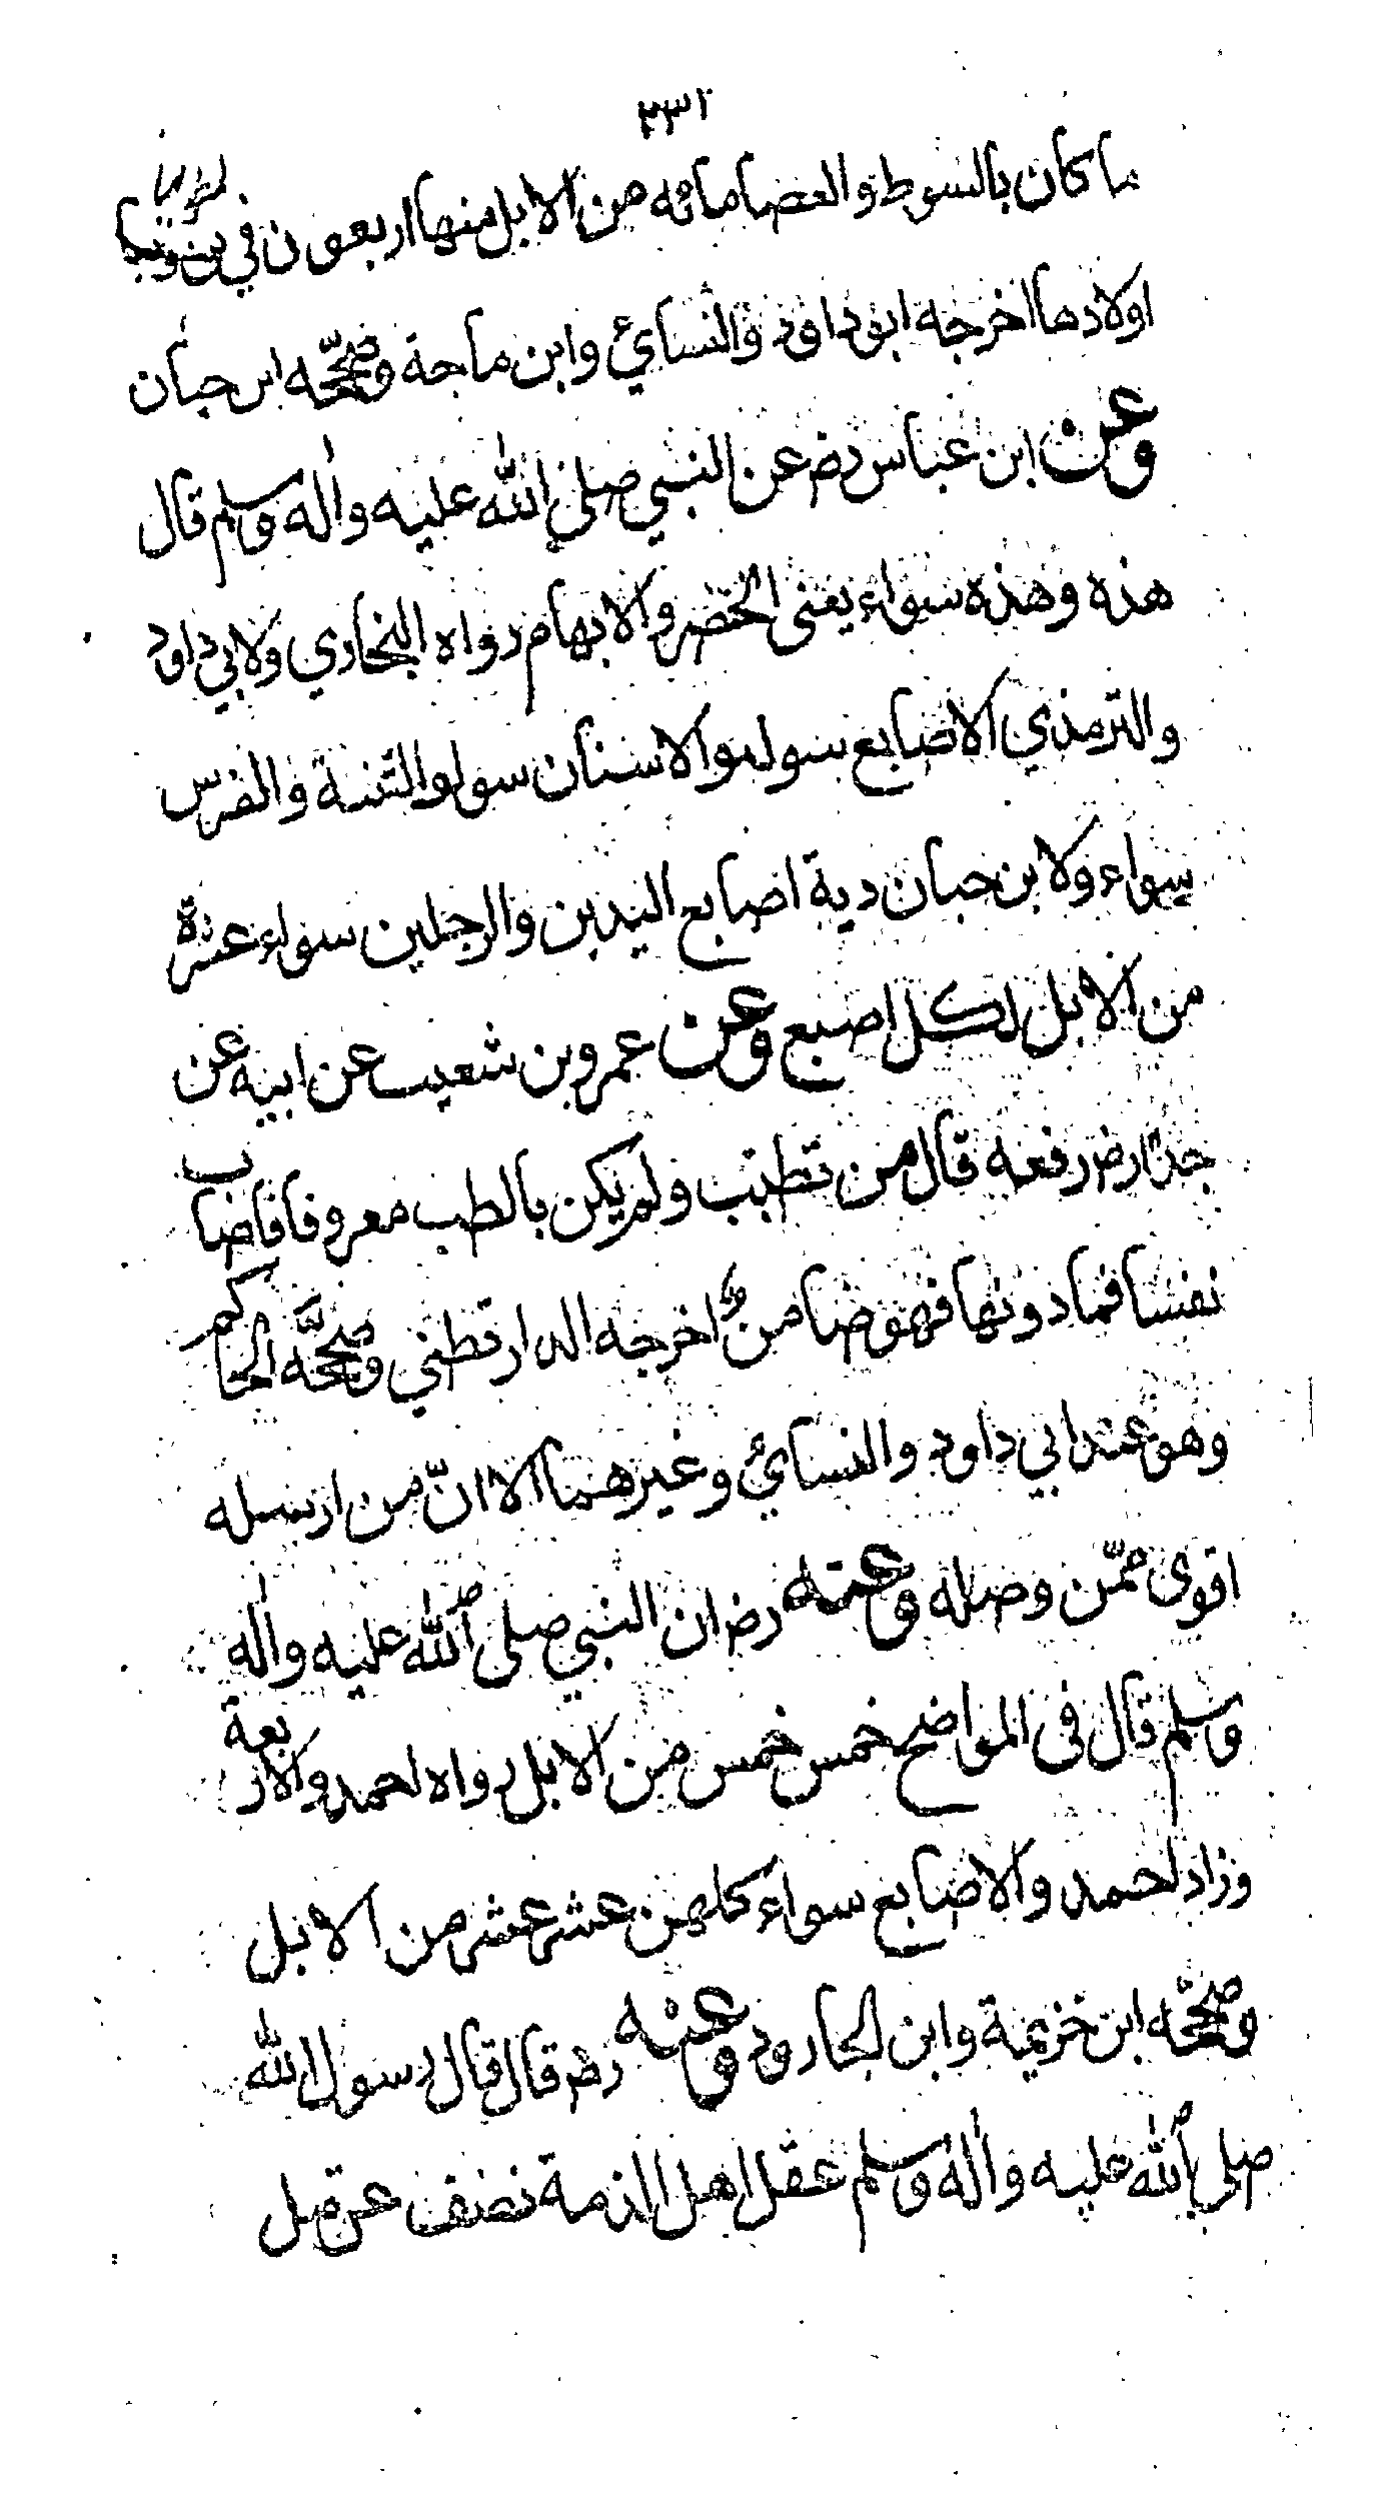 ٢٣٢
ما كان بالسوط والعصا مائة من الابل منها اربعون في بطونها
اولادها اخرجه ابو داود والنسائي وابن ماجة وصححه ابن حبان
وعن ابن عباس رضـ عن النبي صلى الله عليه واله وسلم قال
هذه وهذه سواء يعنى الخنصر والابهام رواه البخاري ولابي داود
والترمذي الاصابع سواء والاسنان سواء الثنية والضرس
سواء ولابن حبان دية اصابع اليدين والرجلين سواء عشرة
من الابل لكل اصبع وعن عمرو بن شعيب عن ابيه عن
جده رضـ رفعه قال من تطبّب ولم يكن بالطب معروفا فاصاب
نفسا فما دونها فهو ضامن اخرجه الدارقطني وصحّحه الحاكم
وهو عند ابي داود والنسائي وغيرهما الا انّ من ارسله
اقوى ممّن وصله وعنه رضـ ان النبي صلى الله عليه واله
وسلم قال فى المواضح خمس خمس من الابل رواه احمد والاربعة
وزاد احمد والاصابع سواء كلهن عشر عشر من الابل
وصحّحه ابن خزيمة وابن الجارود وعنه رضـ قال قال رسول الله
صلى الله عليه واله وسلم عقل اهل الذمة نصف عقل